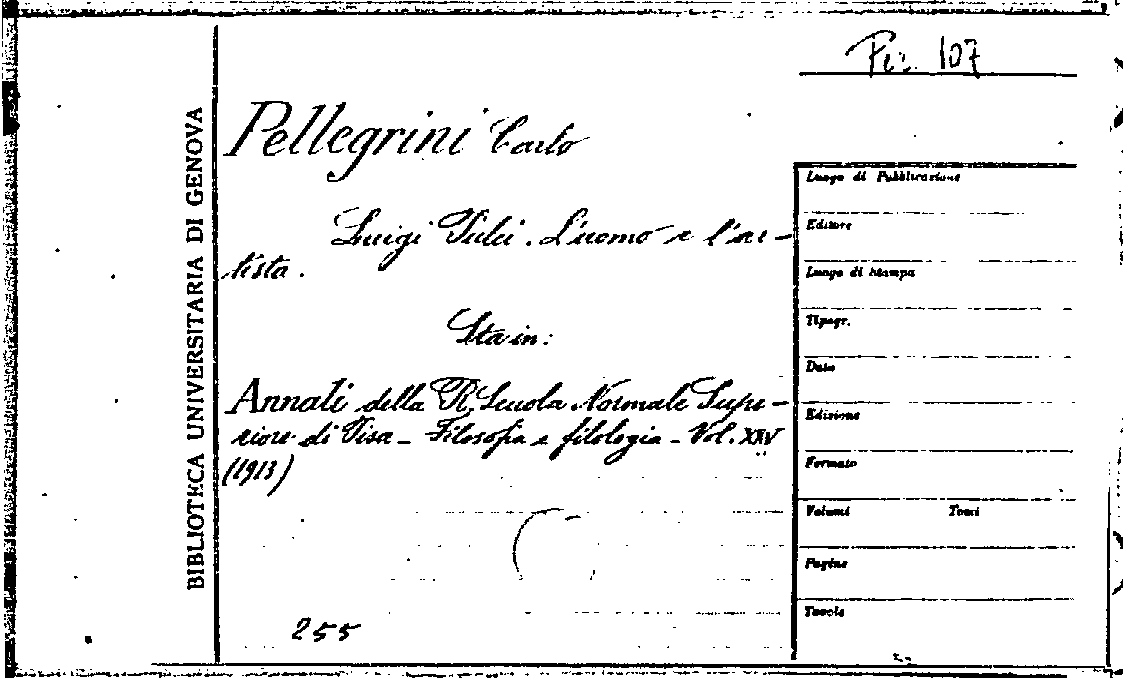 Per. 107
BIBLIOTECA UNIVERSITARIA DI GENOVA
Pellegrini Carlo
Luigi Pulci. L'uomo e l'ar-
tista.
Sta in:
Annali della R. Scuola Normale Supe-
riore di Pisa - Filosofia e filologia - Vol. XXV
(1913)
255
Luogo di Pubblicazione
Editore
Luogo di stampa
Tipogr.
Data
Edizione
Formato
Volumi Tomi
Pagine
Tavole